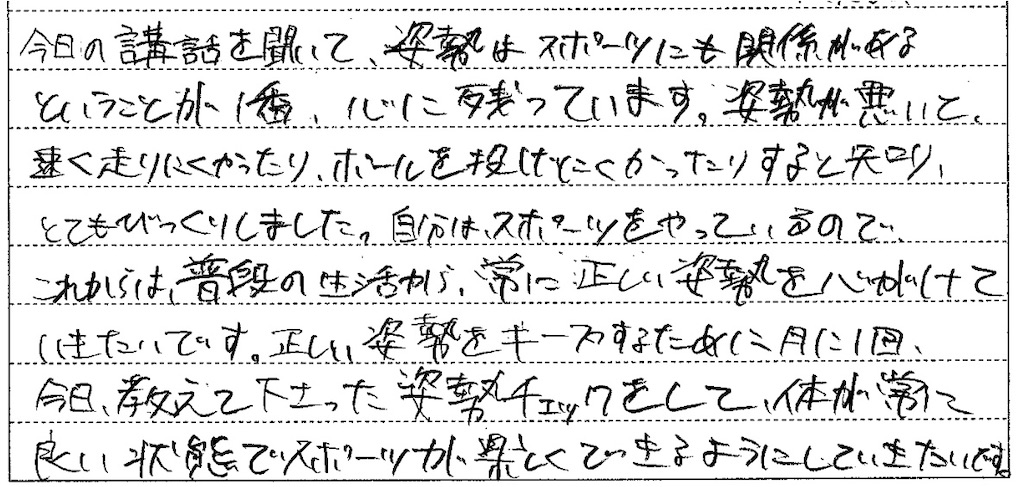 今日の講話を聞いて、姿勢はスポーツにも関係がある
ということが1番、心に残っています。姿勢が悪いと、
速く走りにくかったり、ボールを投げにくかったりすると知り、
とてもびっくりしました。自分は、スポーツをやっているので、
これからは、普段の生活から、常に正しい姿勢を心がけて
いきたいです。正しい姿勢をキープするために月に1回、
今日、教えて下さった姿勢チェックをして、体が常に
良い状態でスポーツが楽しくできるようにしていきたいです。